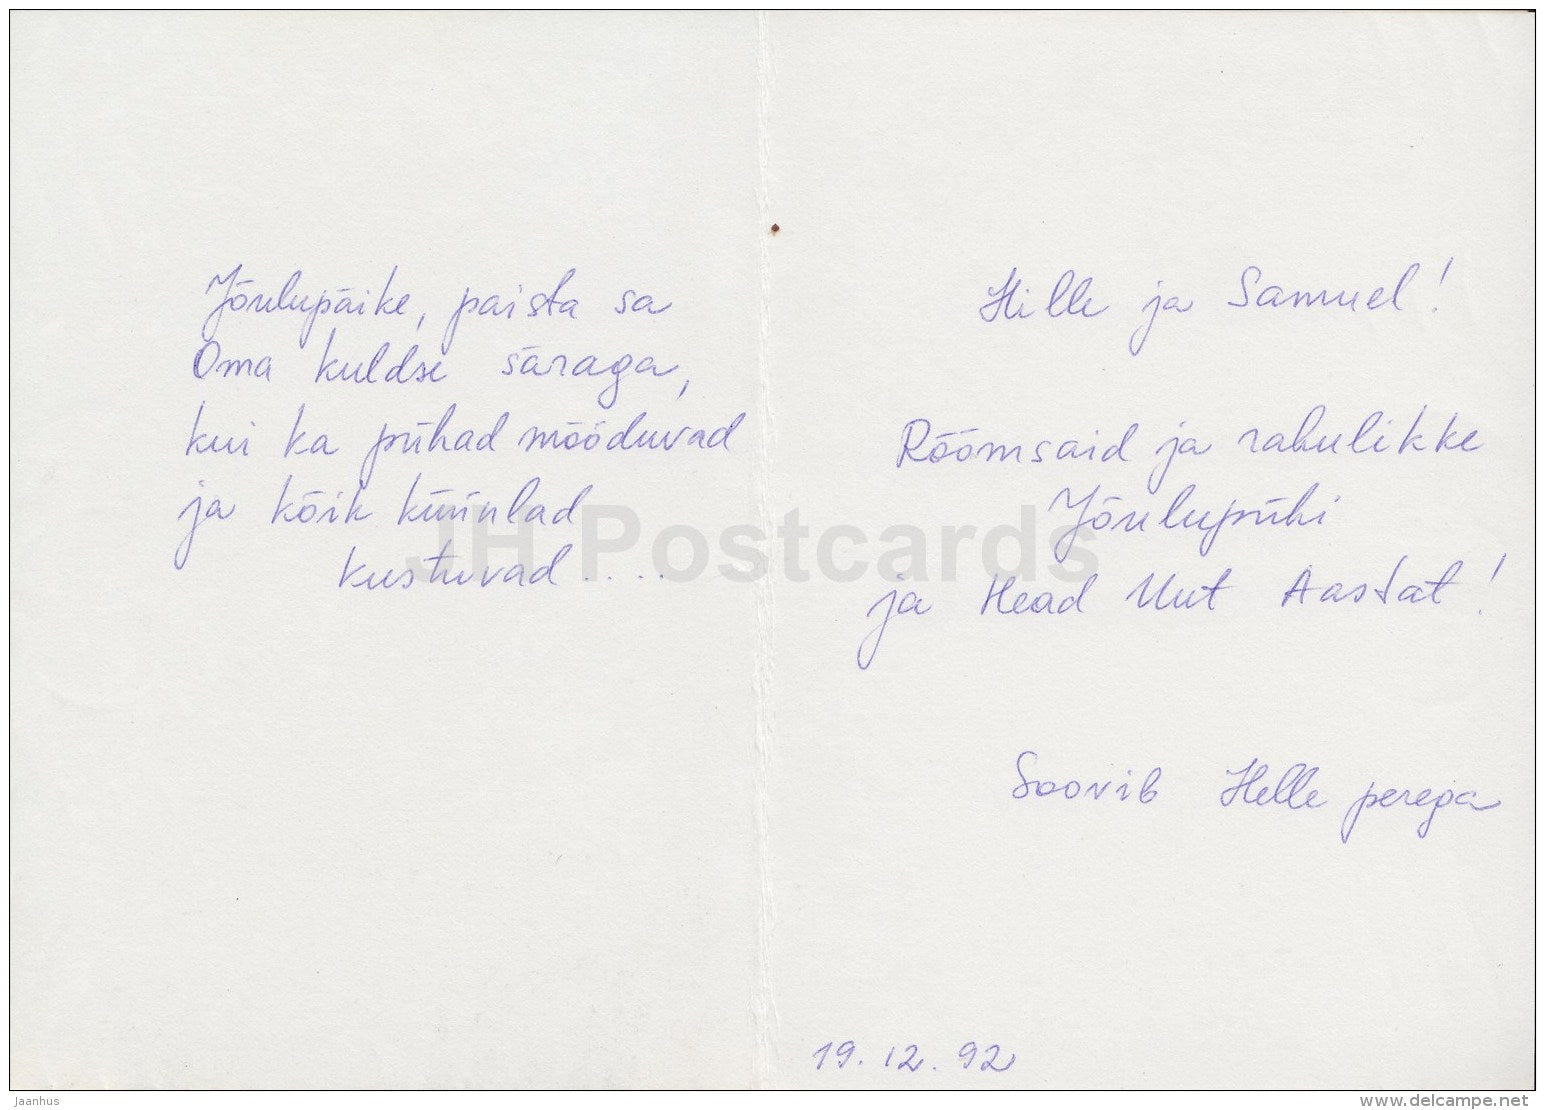 Jõulupäike, paista sa
Oma kuldse säraga,
kui ka pühad mööduvad
ja kõik küünlad
kustuvad....
Hille ja Samuel!
Rõõmsaid ja rahulikke
Jõulupühi
ja Head Uut Aastat!
Soovib Helle perega
19.12.92
JH Postcards
Jaanhus
www.delcampe.net